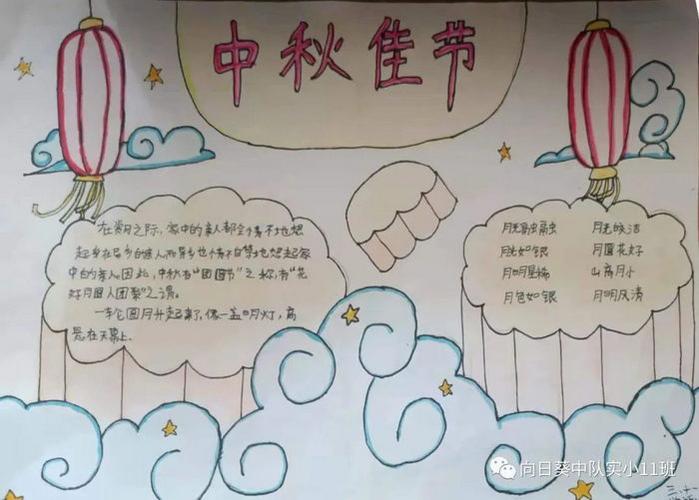 中秋佳节
在赏月之际,家中的亲人都会情不地想
起身在异乡的亲人,而异乡也情不自禁地想起家
中的亲人。因此,中秋有"团圆节"之称,有"花
好月圆人团聚"之谓。
一轮圆月升起来了,像一盏明灯,高
悬在天幕上。
月光融融 月光皎洁
月光如银 月圆花好
月明星稀 山高月小
月色如银 月明风清
向日葵中队实小11班